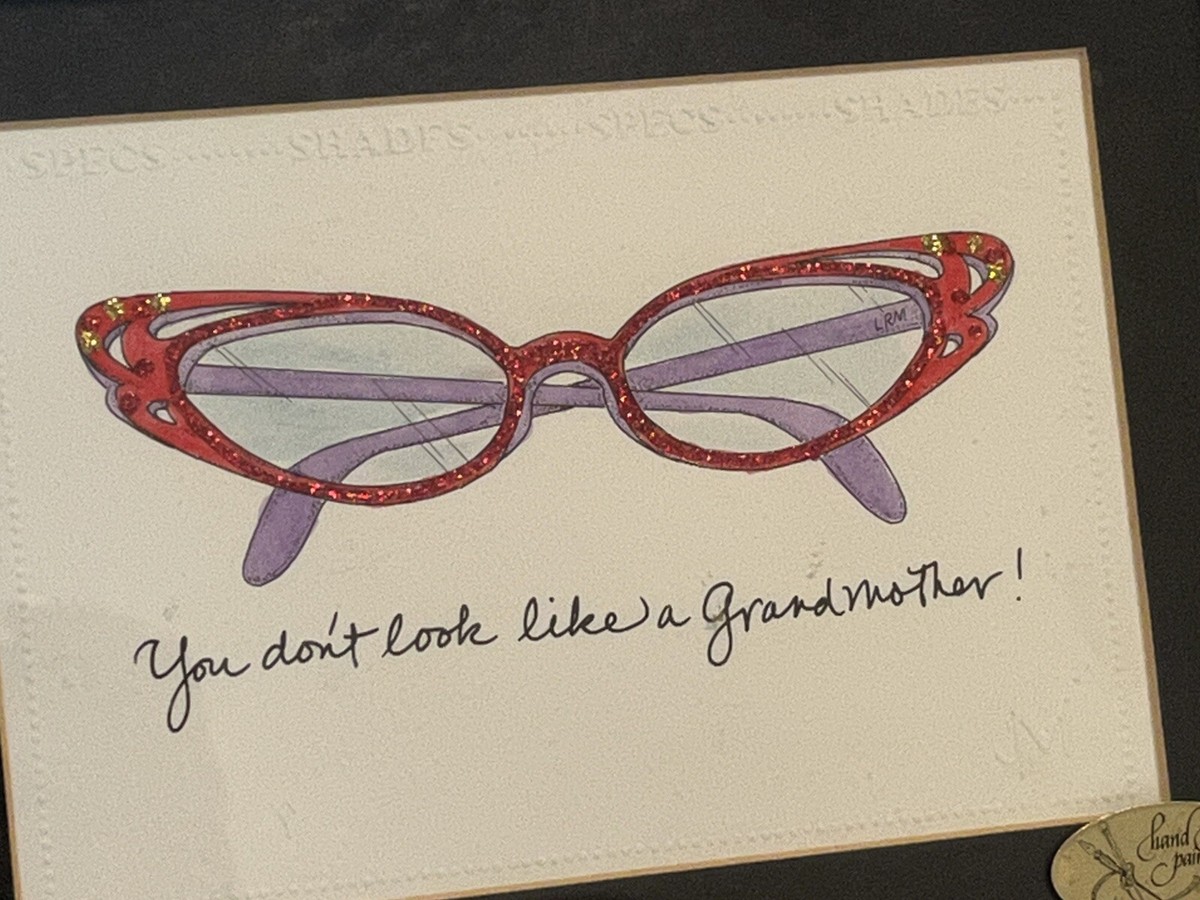 SPECS........SHADES........SPECS........SHADES....
LRM
You don't look like a Grandmother!
hand